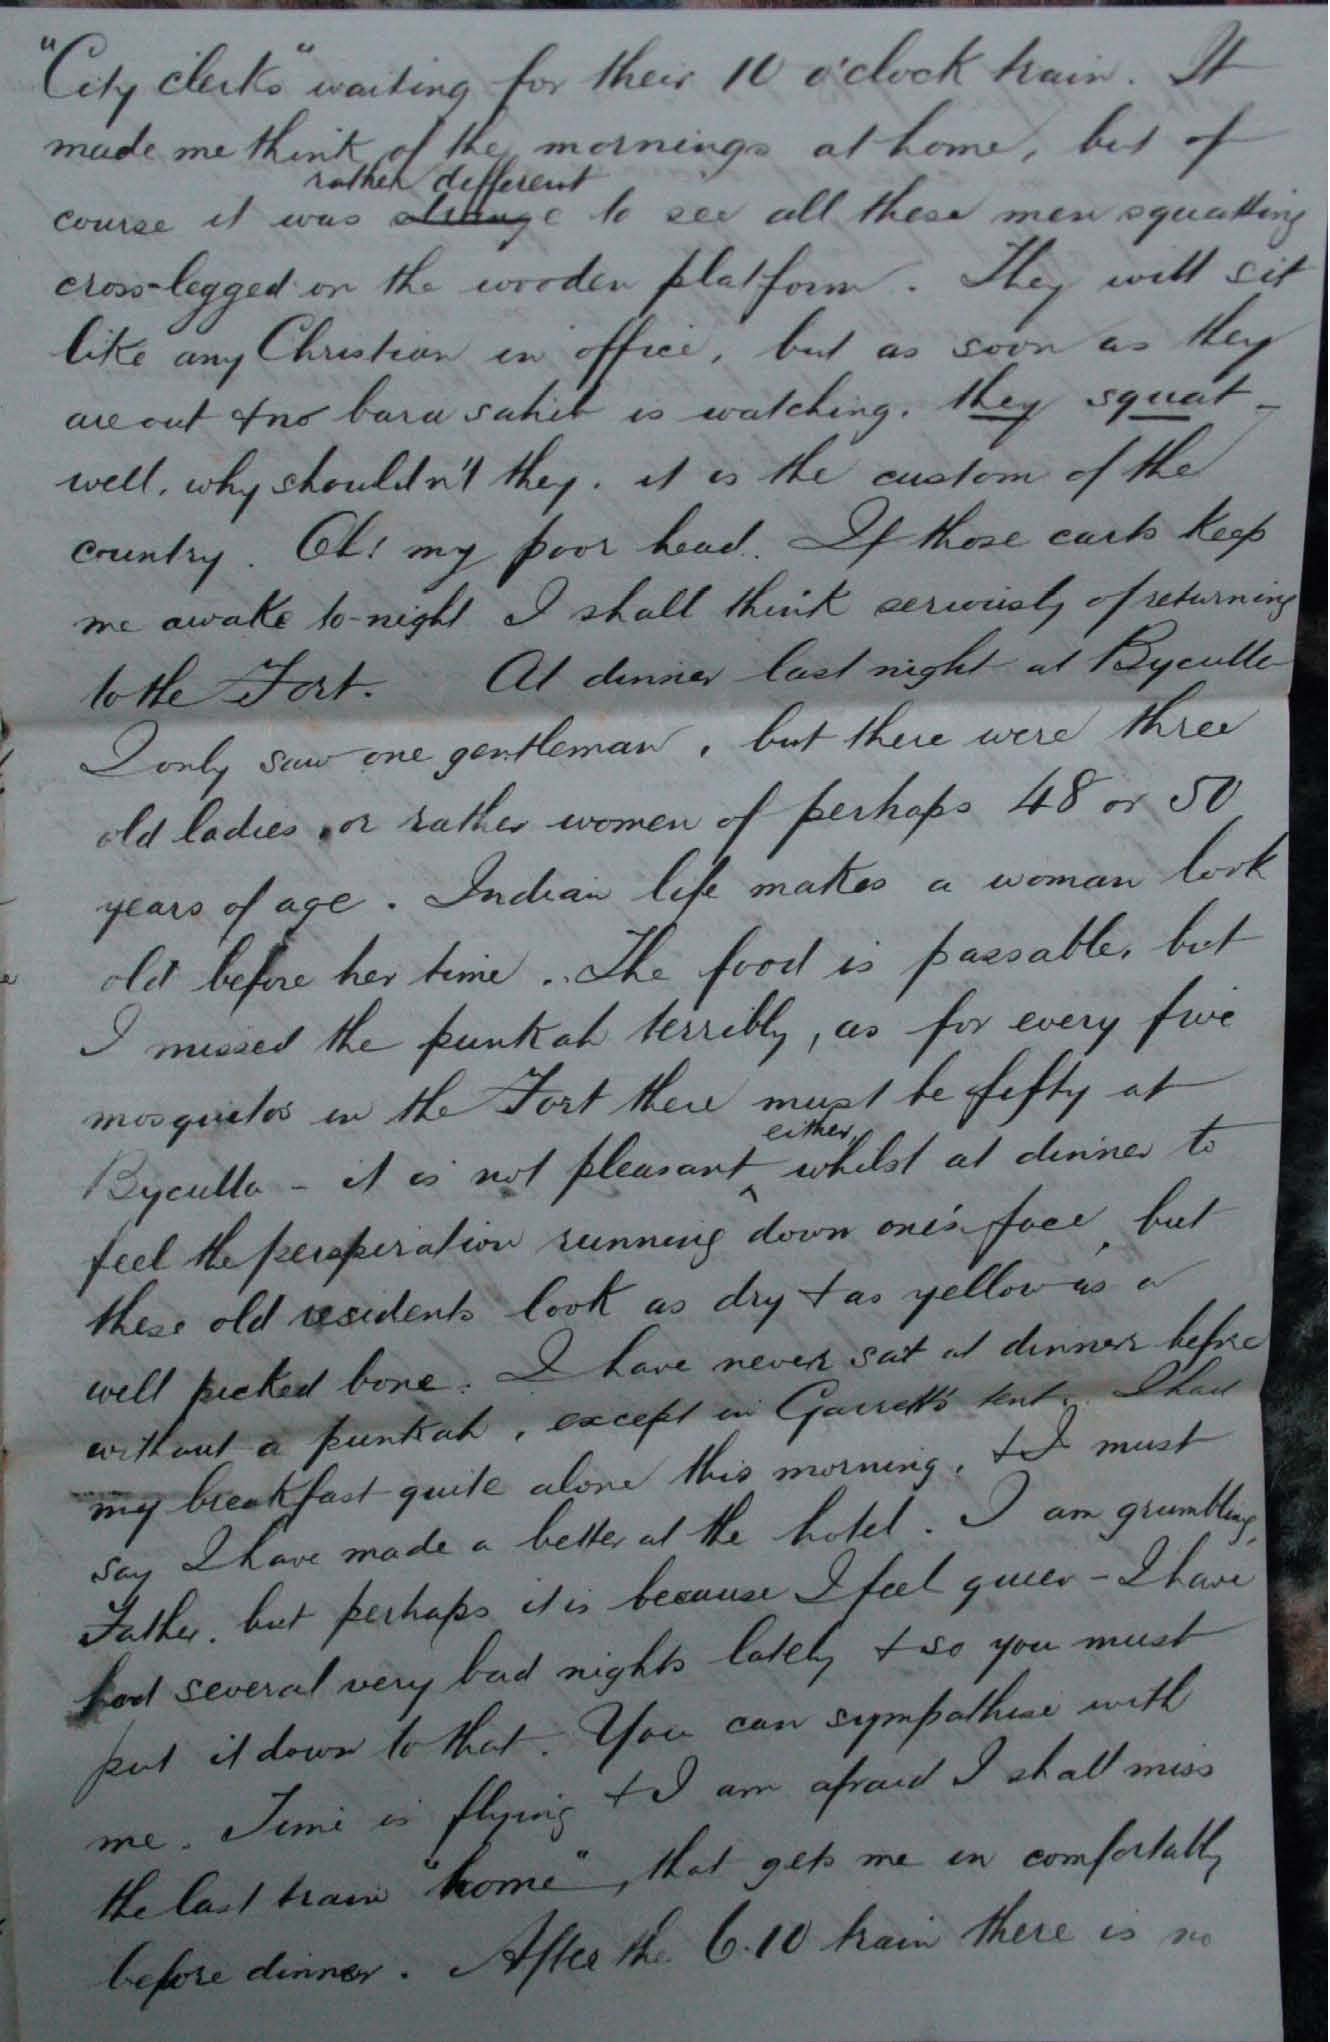 "City clerks" waiting for their 10 o'clock train. It
made me think of the mornings at home, but of
rather different
course it was strange to see all these men squatting
cross-legged on the wooden platform. They will sit
like any Christian in office, but as soon as they
are out & no bara sahib is watching, they squat -
well, why shouldn't they, it is the custom of the
country. Oh! my poor head. If those carts keep
me awake to-night I shall think seriously of returning
to the Fort. At dinner last night at Byculla
I only saw one gentleman, but there were three
old ladies, or rather women of perhaps 48 or 50
years of age. Indian life makes a woman look
old before her time. The food is passable, but
I missed the punkah terribly, as for every five
mosquitos in the Fort there must be fifty at
either
Byculla - it is not pleasant ^ whilst at dinner to
feel the perspiration running down one's face, but
these old residents look as dry & as yellow as a
well picked bone. I have never sat at dinner before
without a punkah, except in Garrett's tent. I had
my breakfast quite alone this morning, & I must
say I have made a better at the hotel. I am grumbling,
Father, but perhaps it is because I feel queer - I have
had several very bad nights lately & so you must
put it down to that. You can sympathise with
me. Time is flying & I am afraid I shall miss
the last train "home", that gets me in comfortably
before dinner. After the 6.10 train there is no